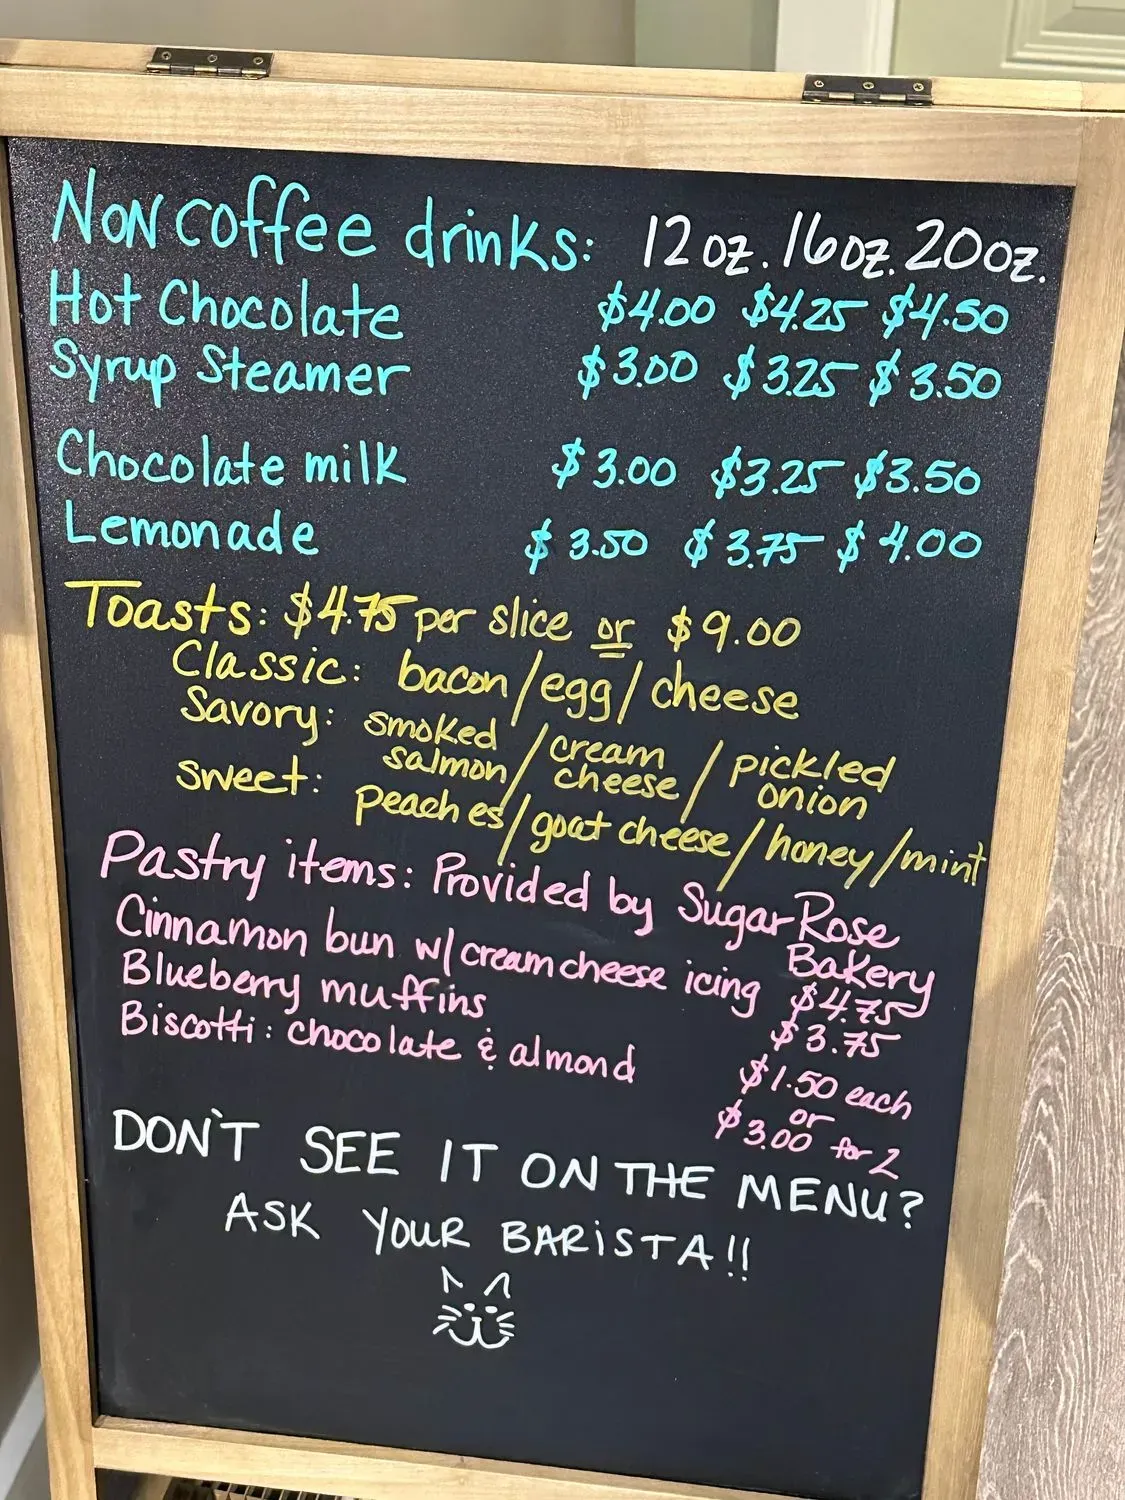 Non coffee drinks: 12oz. 16oz. 20oz.
Hot Chocolate $4.00 $4.25 $4.50
Syrup Steamer $3.00 $3.25 $3.50
Chocolate milk $3.00 $3.25 $3.50
Lemonade $3.50 $3.75 $4.00
Toasts: $4.75 per slice or $9.00
Classic: bacon/egg/cheese
Savory: smoked salmon/cream cheese/pickled onion
sweet: peaches/goat cheese/honey/mint
Pastry items: Provided by Sugar Rose Bakery
Cinnamon bun w/ cream cheese icing $4.75
Blueberry muffins $3.75
Biscotti: chocolate & almond $1.50 each
or
$3.00 for 2
DON'T SEE IT ON THE MENU?
ASK YOUR BARiSTA!!